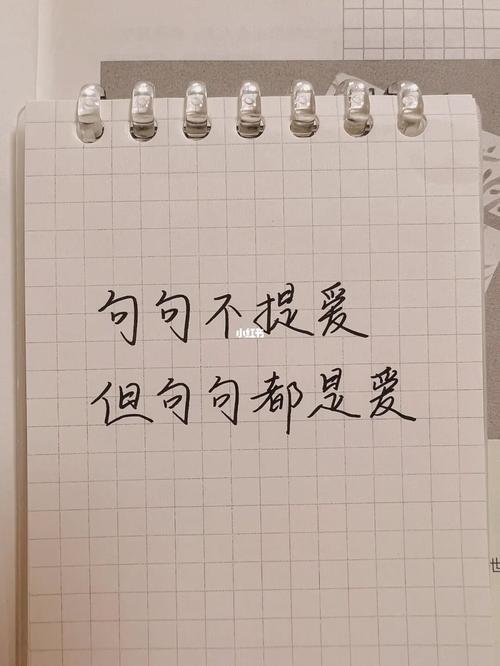 句句不提爱
小红书
但句句都是爱
世